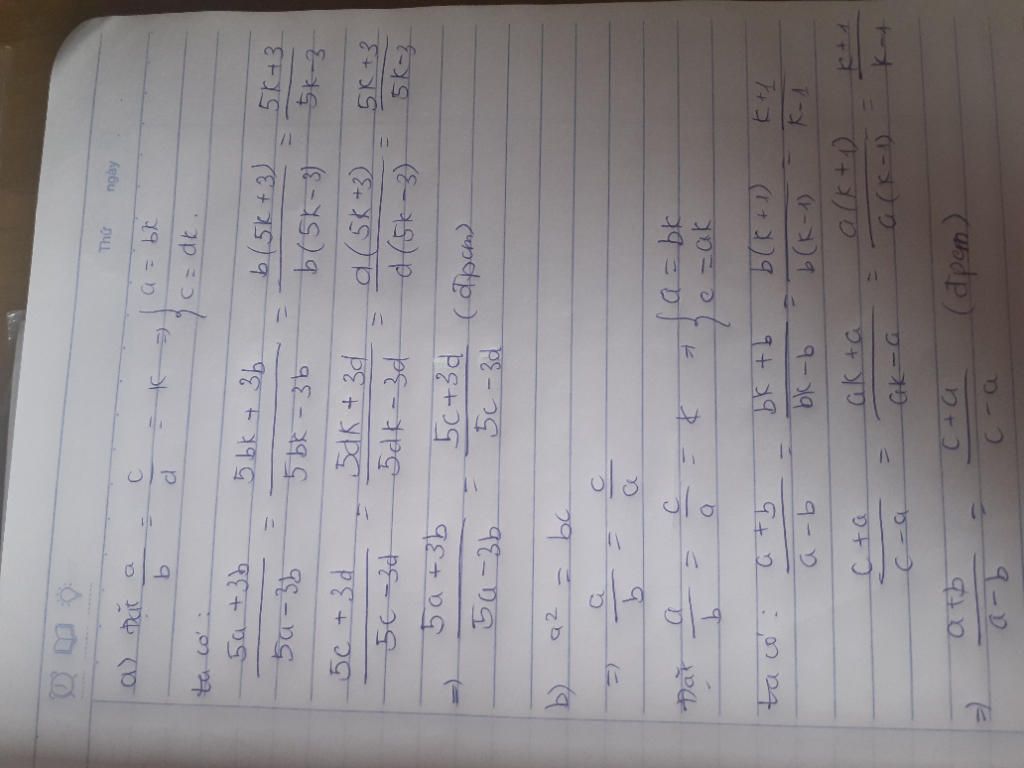 Thứ ngày
a) Đặt a/b = c/d = k => { a = bk
{ c = dk.
ta có:
(5a + 3b)/(5a - 3b) = (5bk + 3b)/(5bk - 3b) = b(5k + 3)/b(5k - 3) = (5k + 3)/(5k - 3)
(5c + 3d)/(5c - 3d) = (5dk + 3d)/(5dk - 3d) = d(5k + 3)/d(5k - 3) = (5k + 3)/(5k - 3)
=> (5a + 3b)/(5a - 3b) = (5c + 3d)/(5c - 3d) (đpcm)
b) a² = bc
=> a/b = c/a
Đặt a/b = c/a = k => { a = bk
{ c = ak
ta có: (a + b)/(a - b) = (bk + b)/(bk - b) = b(k + 1)/b(k - 1) = (k + 1)/(k - 1)
(c + a)/(c - a) = (ak + a)/(ak - a) = a(k + 1)/a(k - 1) = (k + 1)/(k - 1)
=> (a + b)/(a - b) = (c + a)/(c - a) (đpcm)